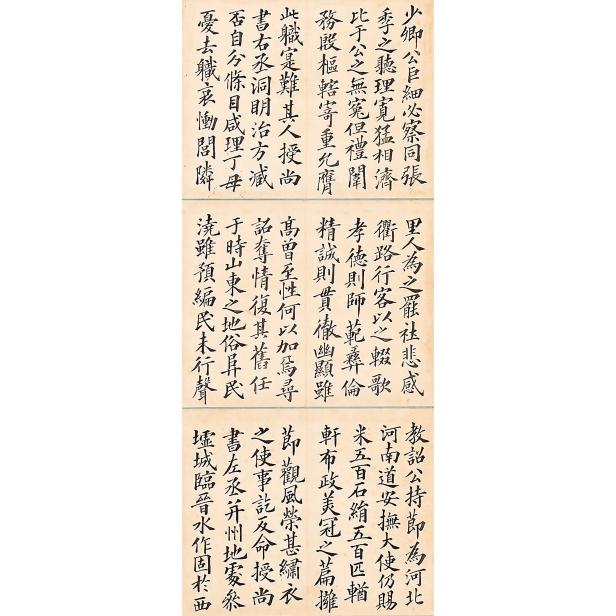 少卿公巨細必察同張
季之聽理寬猛相濟
比于公之無冤但禮闈
務殷樞轄寄重允膺
此職寔難其人授尚
書右丞洞明治方深識
否自分條目咸理丁母
憂去職哀慟閭隣
里人為之罷社悲感
衢路行客以之輟歌
孝德則師範彞倫
精誠則貫徹幽顯雖
高曾至性何以加焉尋
詔奪情復其舊任
于時山東之地俗阜民
澆雖預編民未行聲
教詔公持莭為河北
河南道安撫大使仍賜
米五百石絹五百匹輶
軒布政美冠之萹擁
莭觀風榮甚繡衣
之使事訖反命授尚
書左丞并州地處參
墟城臨晉水作固扵西